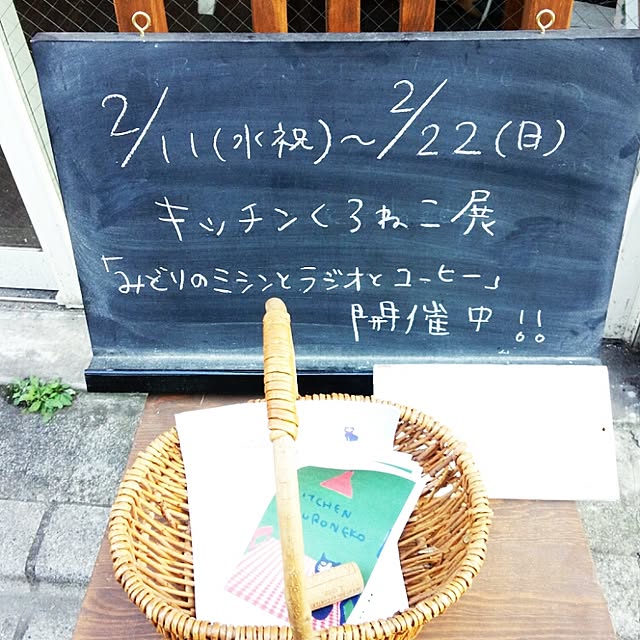 2/11(水祝)〜2/22(日)
キッチンくろねこ展
「みどりのミシンとラジオとコーヒー」
開催中!!
ITCHEN
URONEKO